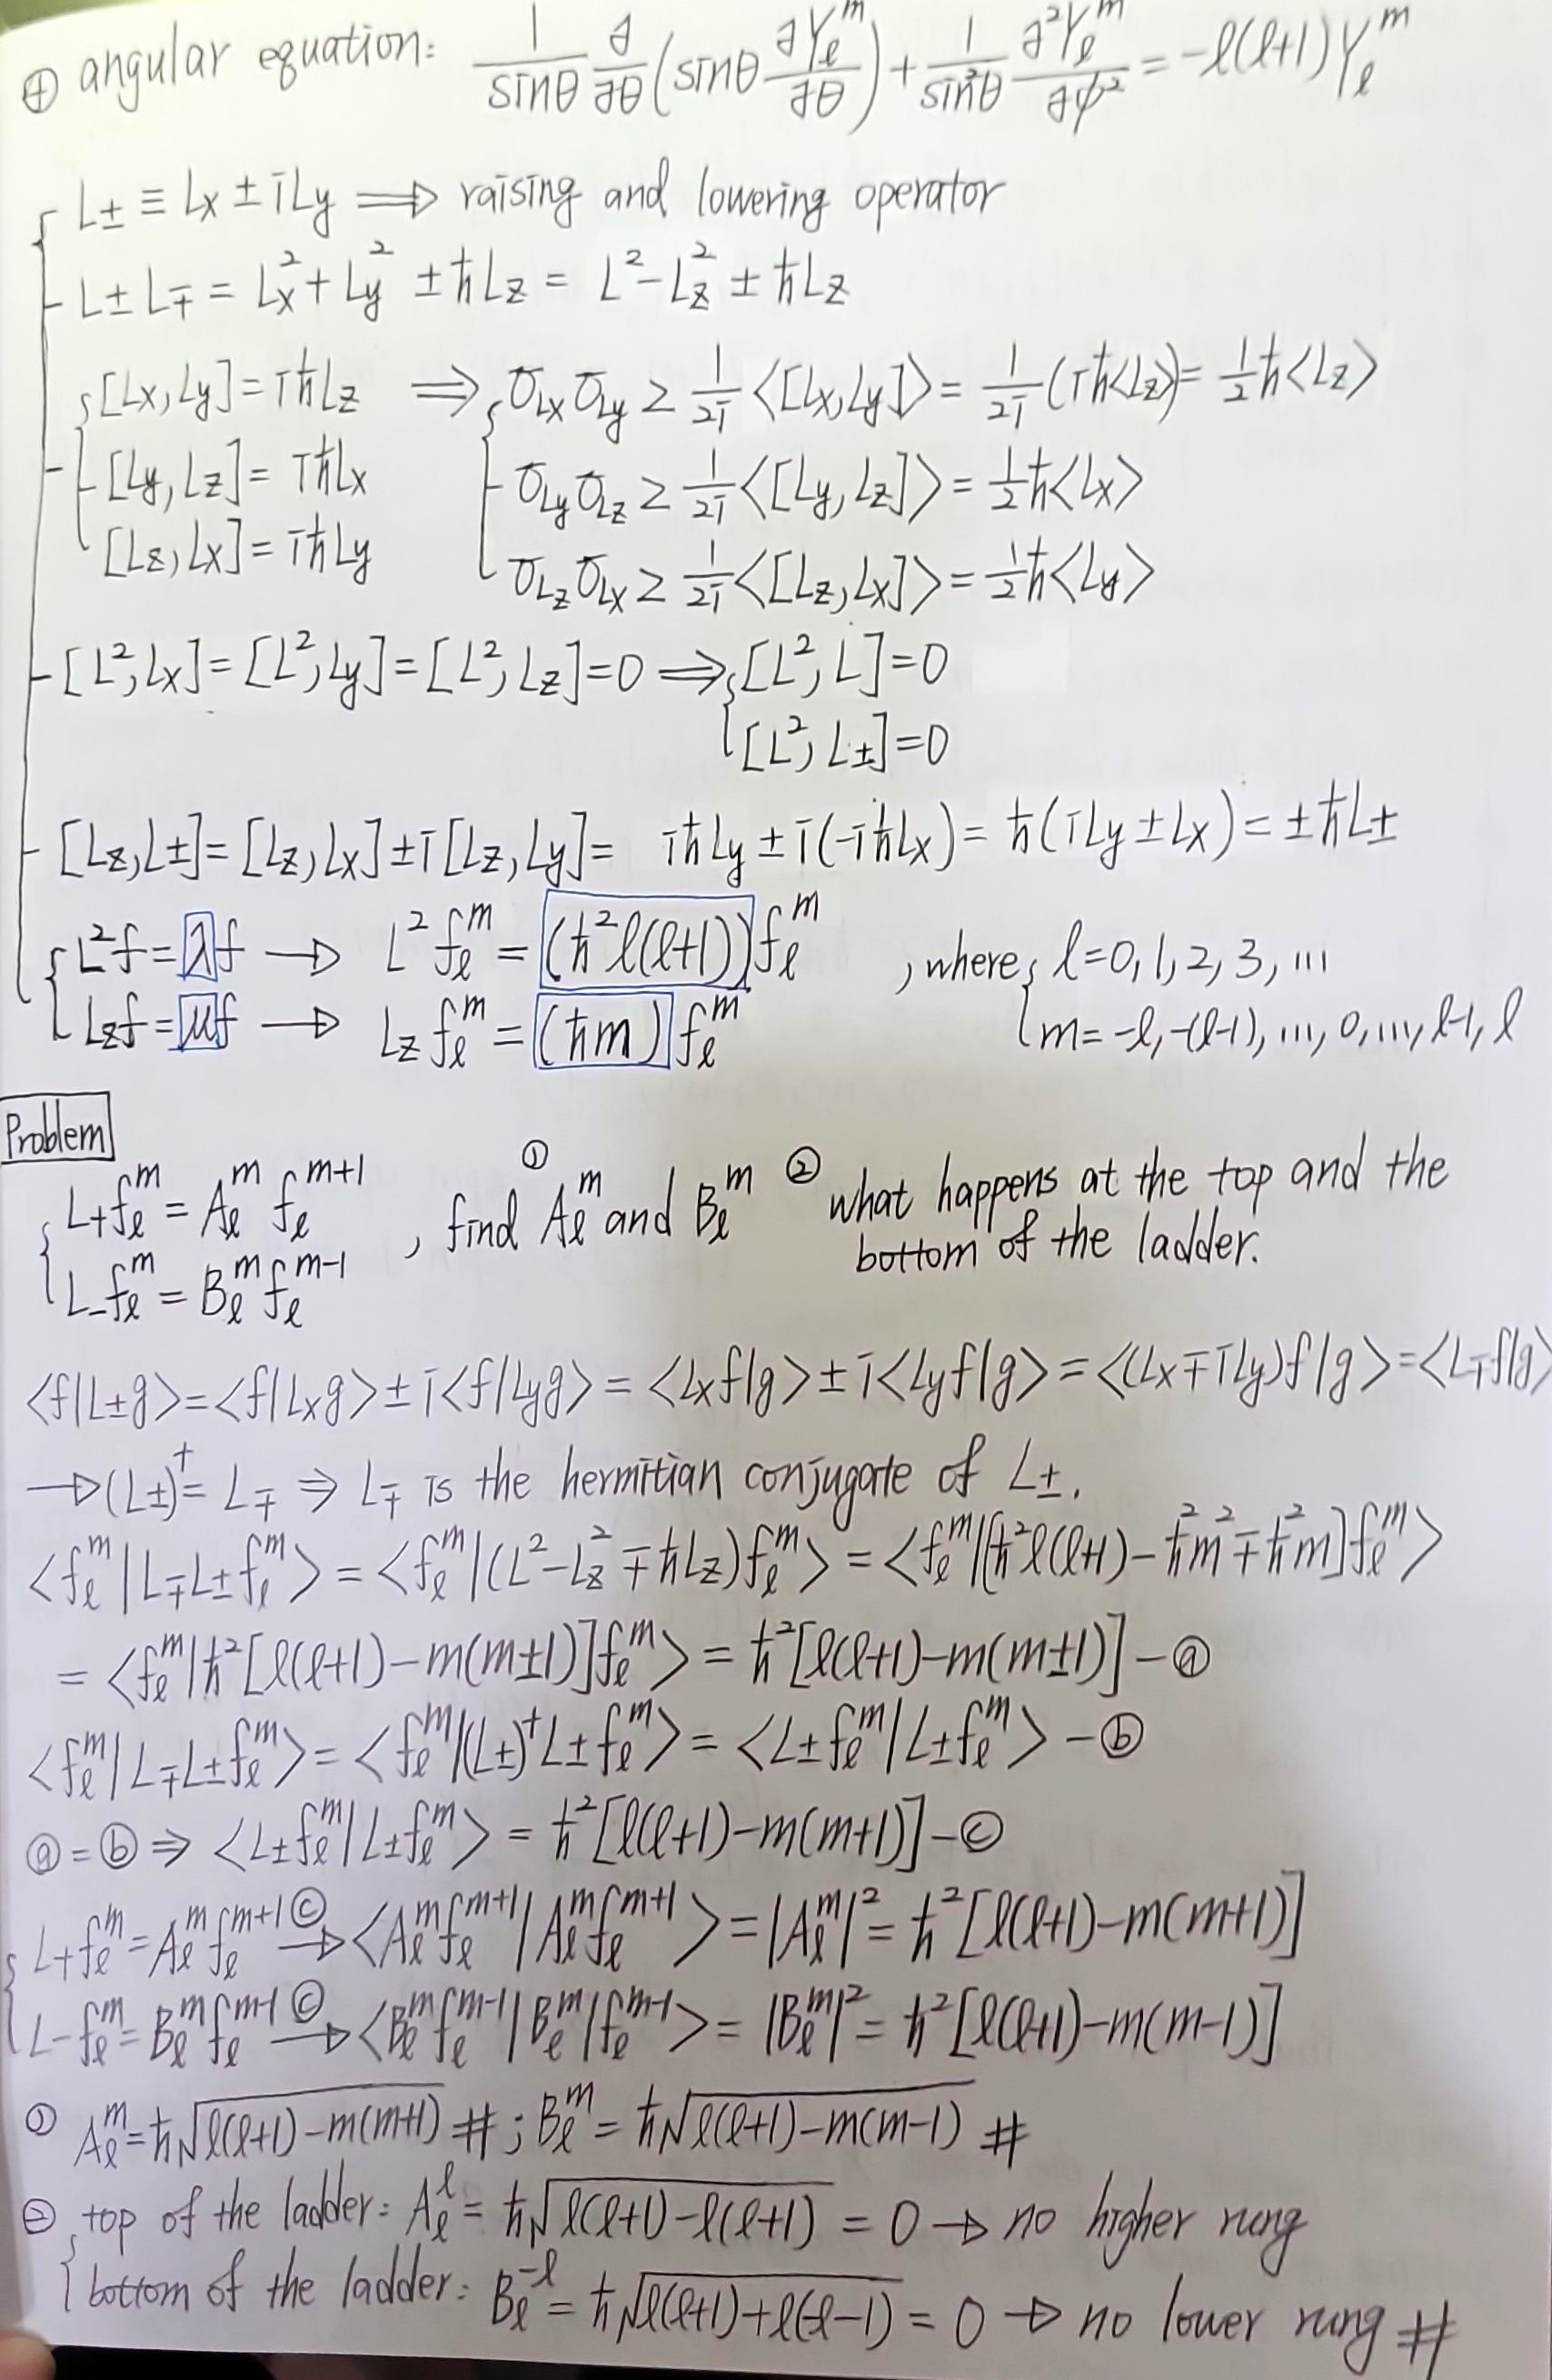 ⊕ angular equation: 1/sinθ ∂/∂θ (sinθ ∂Yₗᵐ/∂θ) + 1/sin²θ ∂²Yₗᵐ/∂φ² = -ℓ(ℓ+1)Yₗᵐ
L± ≡ Lx ± iLy ⟹ raising and lowering operator
L±L∓ = Lx² + Ly² ± ħLz = L² - Lz² ± ħLz
[Lx, Ly] = iħLz ⟹ σLx σLy ≥ 1/2i <[Lx, Ly]> = 1/2i (iħ<Lz>) = 1/2 ħ<Lz>
[Ly, Lz] = iħLx σLy σLz ≥ 1/2i <[Ly, Lz]> = 1/2 ħ<Lx>
[Lz, Lx] = iħLy σLz σLx ≥ 1/2i <[Lz, Lx]> = 1/2 ħ<Ly>
[L², Lx] = [L², Ly] = [L², Lz] = 0 ⟹ [L², L] = 0
[L², L±] = 0
[Lz, L±] = [Lz, Lx] ± i[Lz, Ly] = iħLy ± i(-iħLx) = ħ(iLy ± Lx) = ±ħL±
L²f = λf → L²fₗᵐ = (ħ²ℓ(ℓ+1))fₗᵐ , where ℓ = 0, 1, 2, 3, ...
Lzf = μf → Lz fₗᵐ = (ħm) fₗᵐ m = -ℓ, -(ℓ-1), ..., 0, ..., ℓ-1, ℓ
Problem
L+fₗᵐ = Aₗᵐ fₗᵐ⁺¹ , find ① Aₗᵐ and Bₗᵐ ② what happens at the top and the
L-fₗᵐ = Bₗᵐ fₗᵐ⁻¹ bottom of the ladder.
<f|L±g> = <f|Lxg> ± i<f|Lyg> = <Lxf|g> ± i<Lyf|g> = <(Lx ∓ iLy)f|g> = <L∓f|g>
→ (L±)† = L∓ ⇒ L∓ is the hermitian conjugate of L±.
<fₗᵐ|L∓L±fₗᵐ> = <fₗᵐ|(L² - Lz² ∓ ħLz)fₗᵐ> = <fₗᵐ|[ħ²ℓ(ℓ+1) - ħ²m² ∓ ħ²m]fₗᵐ>
= <fₗᵐ|ħ²[ℓ(ℓ+1) - m(m±1)]fₗᵐ> = ħ²[ℓ(ℓ+1) - m(m±1)] - ⓐ
<fₗᵐ|L∓L±fₗᵐ> = <fₗᵐ|(L±)†L±fₗᵐ> = <L±fₗᵐ|L±fₗᵐ> - ⓑ
ⓐ = ⓑ ⇒ <L±fₗᵐ|L±fₗᵐ> = ħ²[ℓ(ℓ+1) - m(m+1)] - ⓒ
L+fₗᵐ = Aₗᵐfₗᵐ⁺¹ ⓒ→ <Aₗᵐfₗᵐ⁺¹|Aₗᵐfₗᵐ⁺¹> = |Aₗᵐ|² = ħ²[ℓ(ℓ+1) - m(m+1)]
L-fₗᵐ = Bₗᵐfₗᵐ⁻¹ ⓒ→ <Bₗᵐfₗᵐ⁻¹|Bₗᵐ|fₗᵐ⁻¹> = |Bₗᵐ|² = ħ²[ℓ(ℓ+1) - m(m-1)]
① Aₗᵐ = ħ√(ℓ(ℓ+1) - m(m+1)) # ; Bₗᵐ = ħ√(ℓ(ℓ+1) - m(m-1)) #
② top of the ladder: Aₗˡ = ħ√(ℓ(ℓ+1) - ℓ(ℓ+1)) = 0 → no higher rung
bottom of the ladder: Bₗ⁻ˡ = ħ√(ℓ(ℓ+1) + ℓ(-ℓ-1)) = 0 → no lower rung #